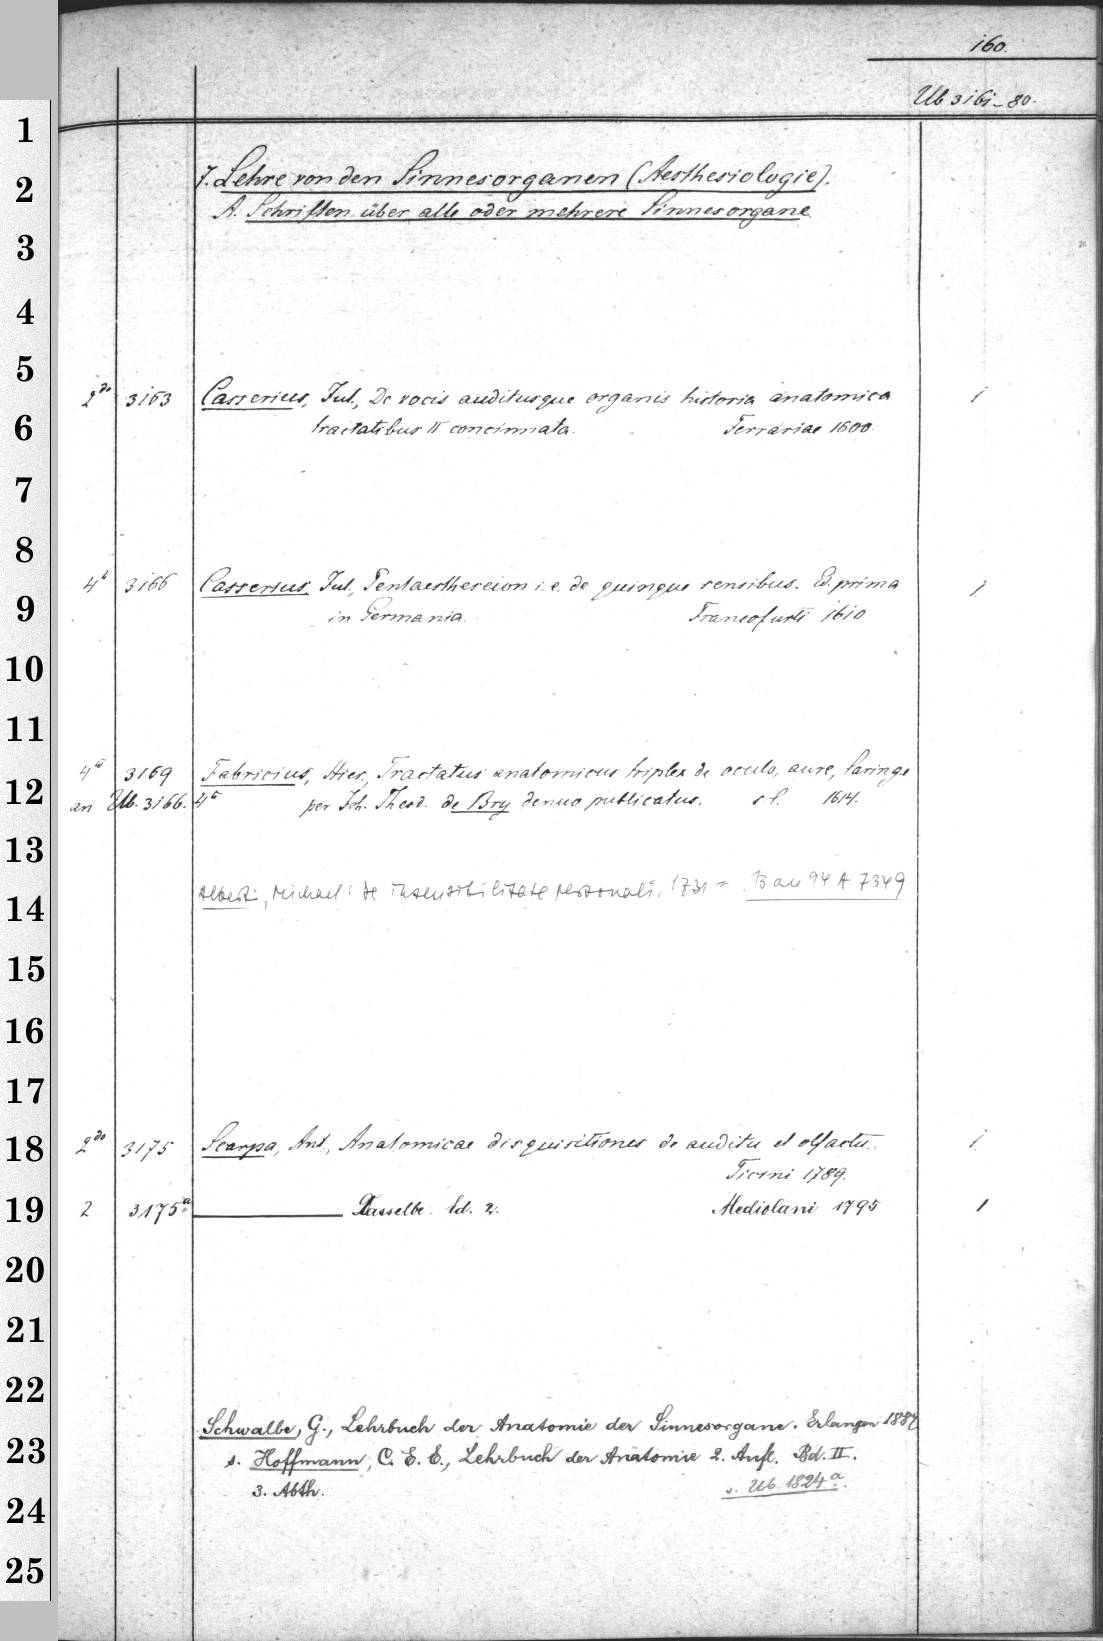 160.
Ub 3161-80.
1
7. Lehre von den Sinnesorganen (Aesthesiologie).
2
A. Schriften über alle oder mehrere Sinnesorgane
3
4
5
2do 3163 Casserius, Jul., De vocis auditusque organis historia anatomica 1
6
tractatibus II concinnata. Ferrariae 1600.
7
8
4t 3166 Casserius, Jul., Pentaestheseion i. e. de quinque sensibus. Ed. prima 1
9
in Germania. Francofurti 1610
10
11
4to 3169 Fabricius, Hier., Tractatus anatomicus triplex de oculo, aure, laringe
12
an Ub. 3166. 4to per Joh. Theod. de Bry denuo publicatus. s. l. 1614.
13
Alberti, Michael: de insensibilitate personali. 1731 = B an 94 A 7349
14
15
16
17
18
2do 3175 Scarpa, Ant., Anatomicae disquisitiones de auditu et olfactu. 1
Ticini 1789.
19
2 3175a Dasselbe. Ed. 2. Mediolani 1795 1
20
21
22
Schwalbe, G., Lehrbuch der Anatomie der Sinnesorgane. Erlangen 1887
23
s. Hoffmann, C. E. E., Lehrbuch der Anatomie 2. Aufl. Bd. II.
3. Abth. s. Ub. 1824a.
24
25